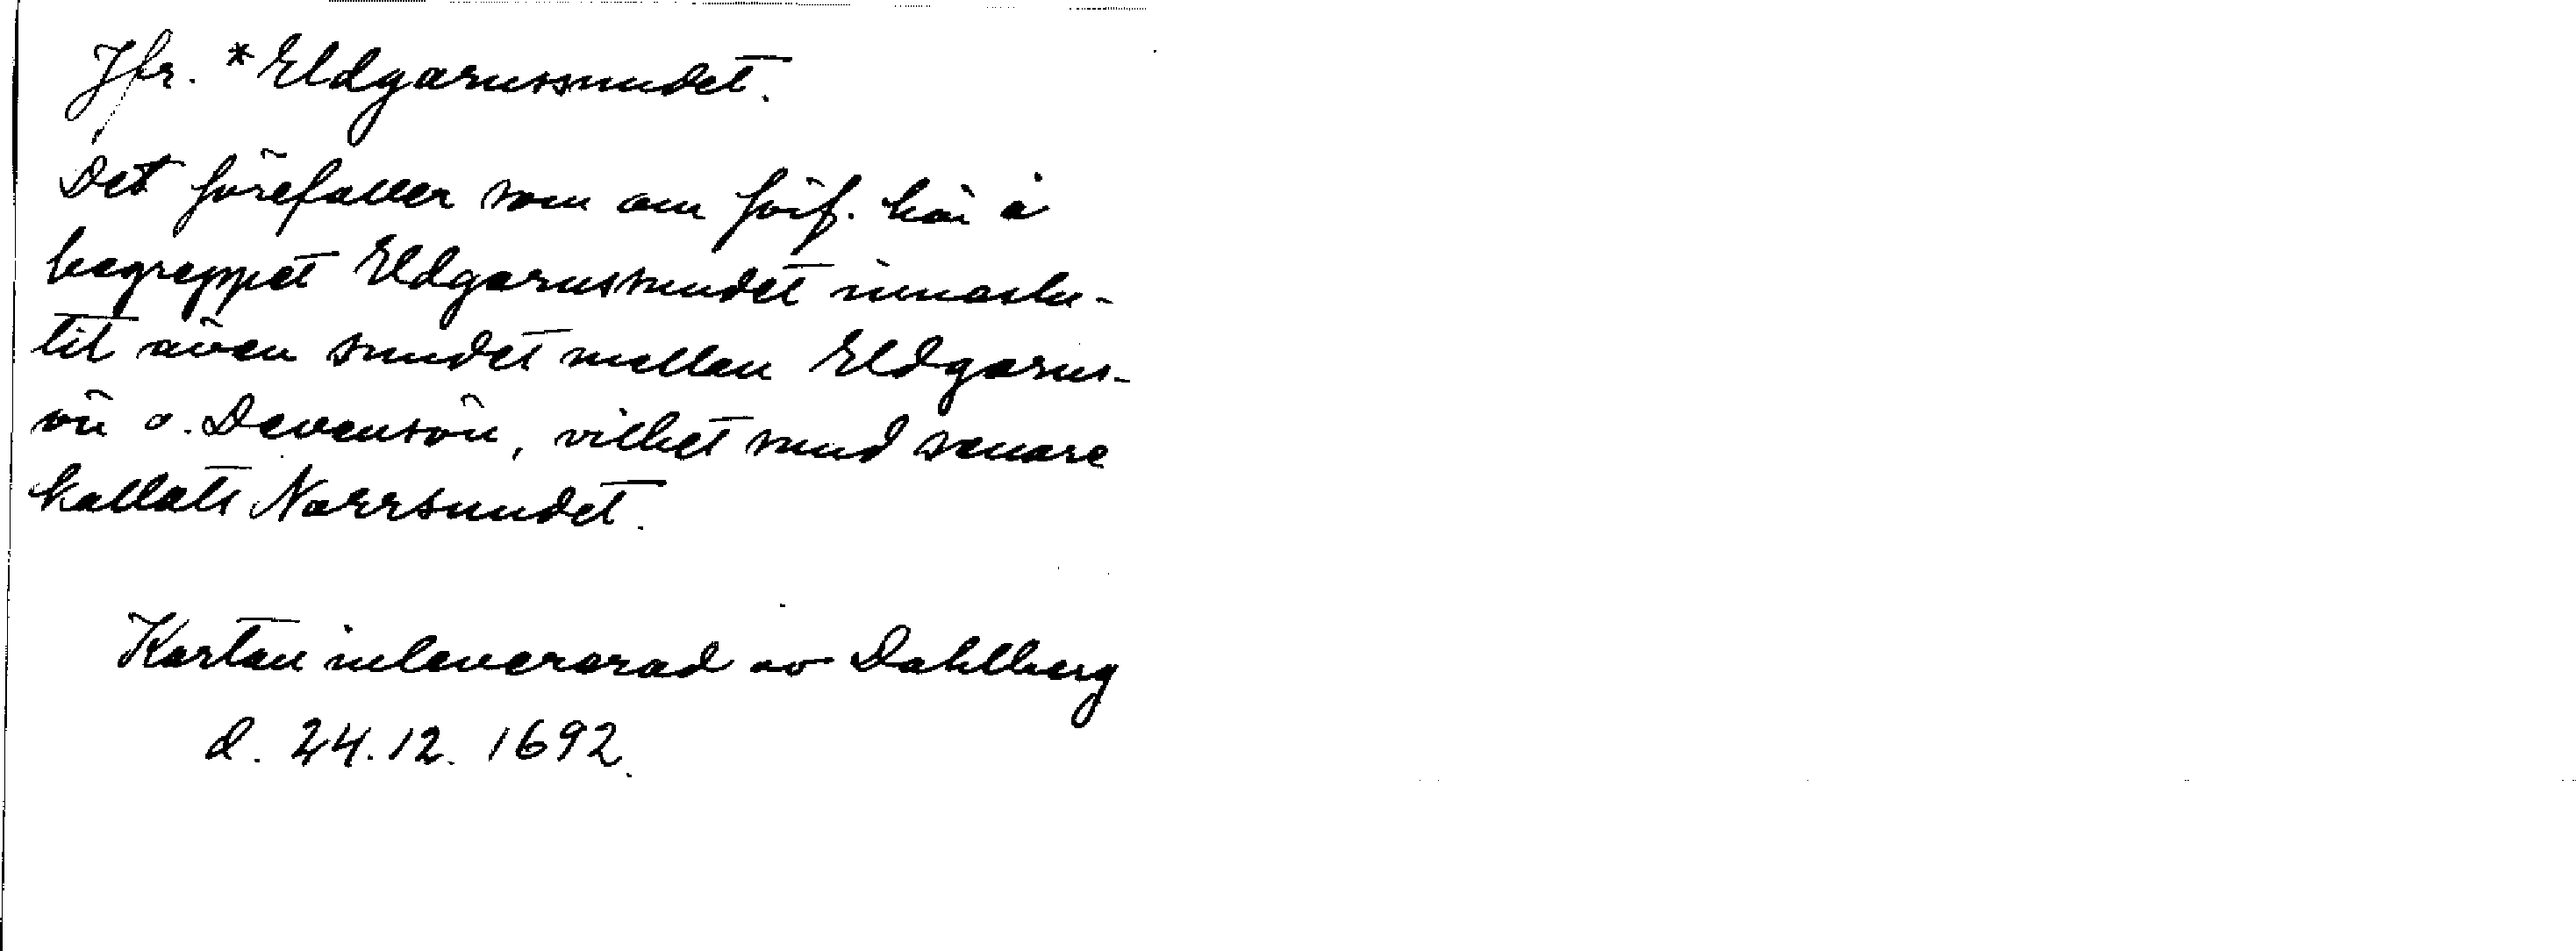 Jfr. *Eldgarnssundet.
Det förefaller som om förf. här i
begreppet Eldgarnssundet inneslu-
tit även sundet mellan Eldgarns-
ön o. Devensön, vilket sund senare
kallats Norrsundet.
Kartan inlevererad av Dahlberg
d. 24.12. 1692.